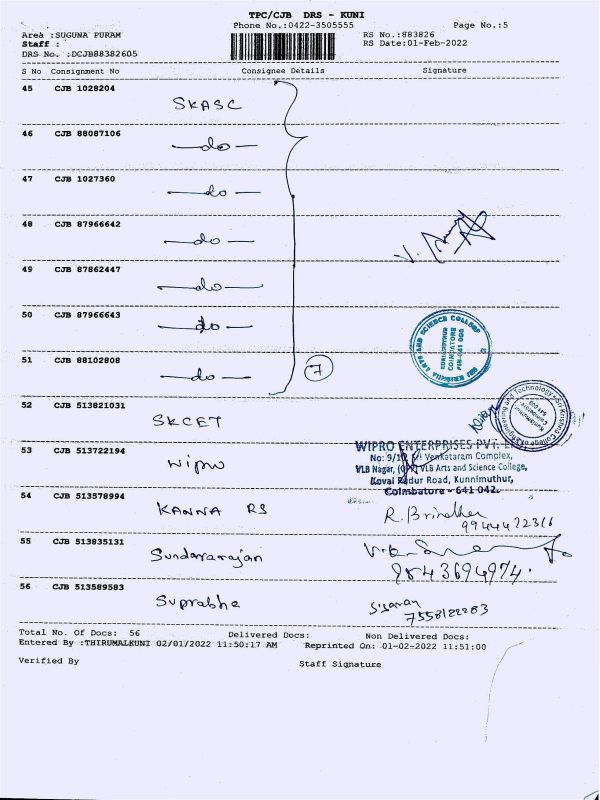 TPC/CJB DRS - KUNI
Phone No.:0422-3505555
Page No.:5
Area :SUGUNA PURAM
RS No.:883826
Staff :
RS Date:01-Feb-2022
DRS No. :DCJB88382605
S No Consignment No Consignee Details Signature
45 CJB 1028204
SKASC
46 CJB 88087106
—do—
47 CJB 1027360
—do—
48 CJB 87966642
—do—
49 CJB 87862447
—do—
50 CJB 87966643
—do—
51 CJB 88102808
—do—
7
52 CJB 513821031
SKCET
53 CJB 513722194
Wipro
WIPRO ENTERPRISES PVT. LTD.
No: 9/1 Venkataram Complex,
VLB Nagar, VLB Arts and Science College,
Kovai Pudur Road, Kunnimuthur,
Coimbatore - 641 042.
54 CJB 513578994
KANNA RS
R. Brindha
55 CJB 513835131
Sundararajan
9843694974.
56 CJB 513589583
Suprabha
Total No. Of Docs: 56 Delivered Docs: Non Delivered Docs:
Entered By :THIRUMALKUNI 02/01/2022 11:50:17 AM Reprinted On: 01-02-2022 11:51:00
Verified By Staff Signature